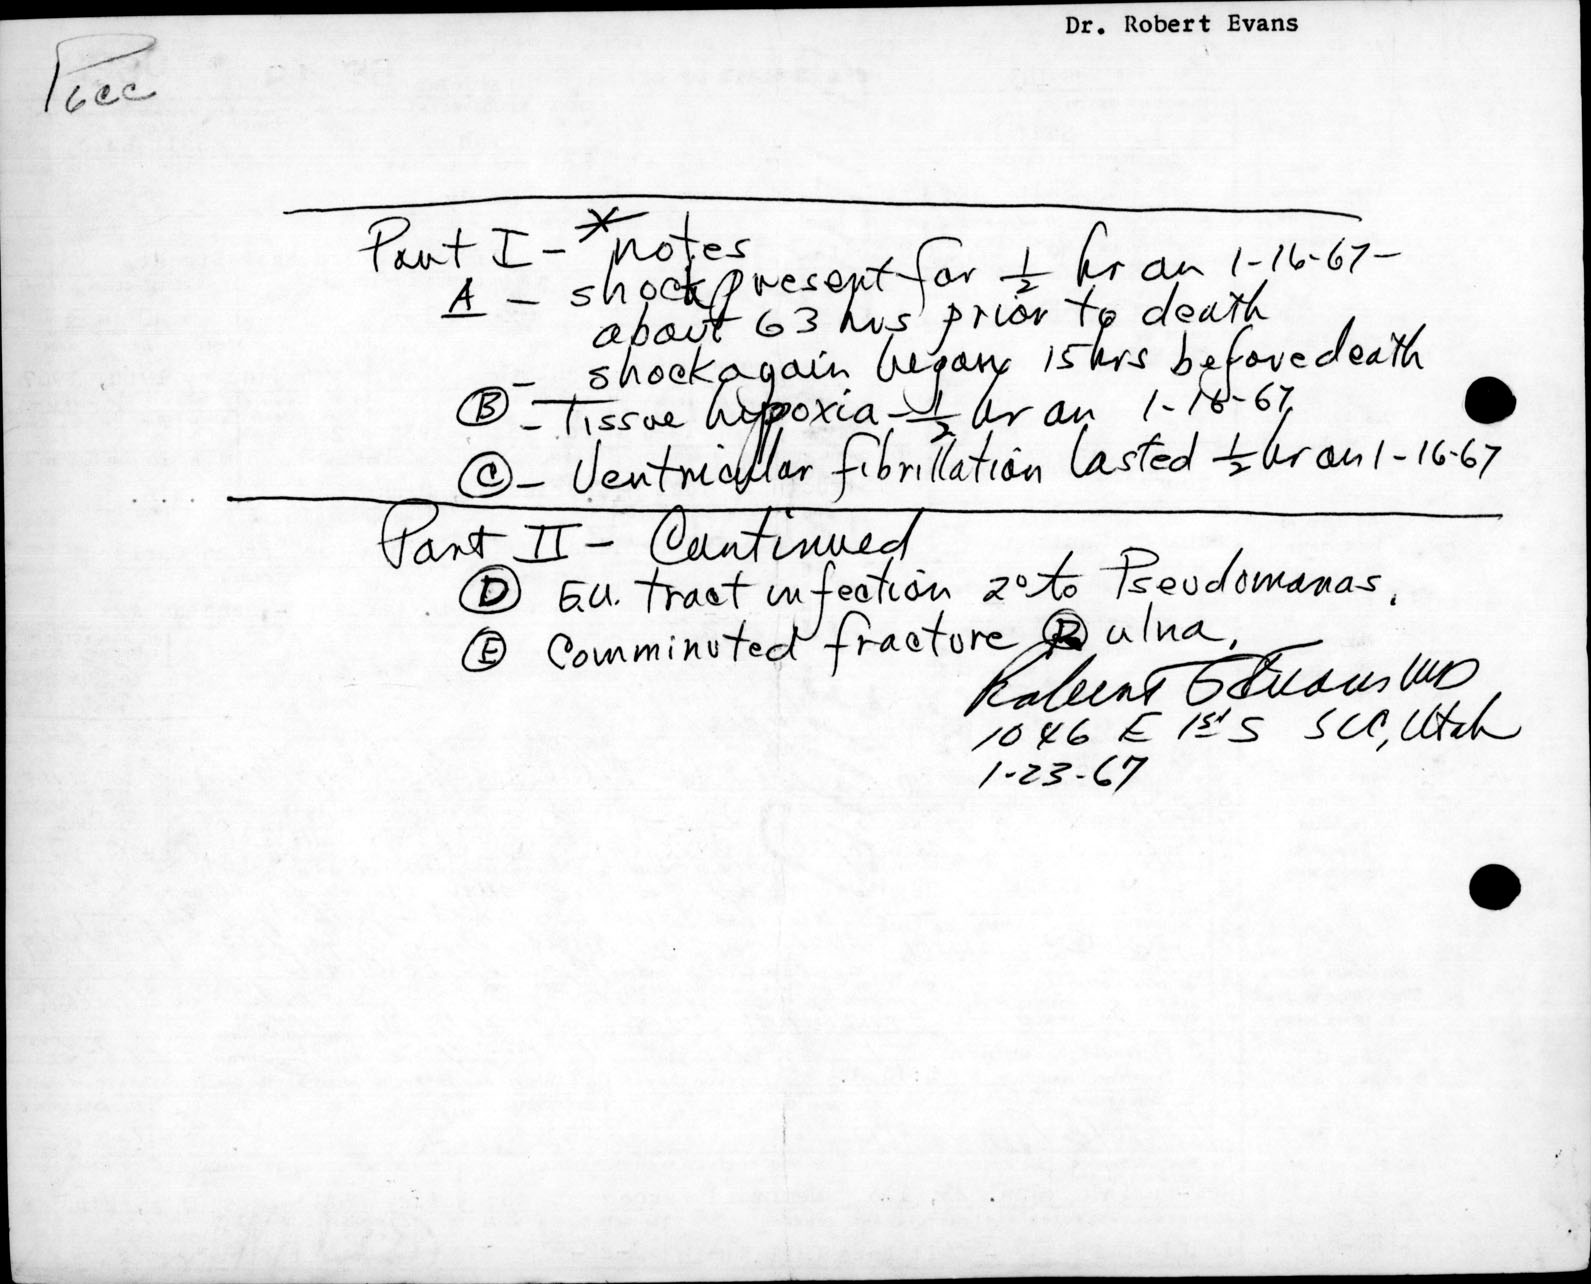 Dr. Robert Evans
Part I - * notes
A - shock present for 1/2 hr on 1-16-67 -
about 63 hrs prior to death
- shock again began 15 hrs before death
B - Tissue hypoxia - 1/2 hr on 1-16-67
C - Ventricular fibrillation lasted 1/2 hr on 1-16-67
Part II - Continued
D G.U. tract infection 2° to Pseudomonas.
E Comminuted fracture R ulna.
Robert G Evans MD
1046 E 1st S SLC, Utah
1-23-67